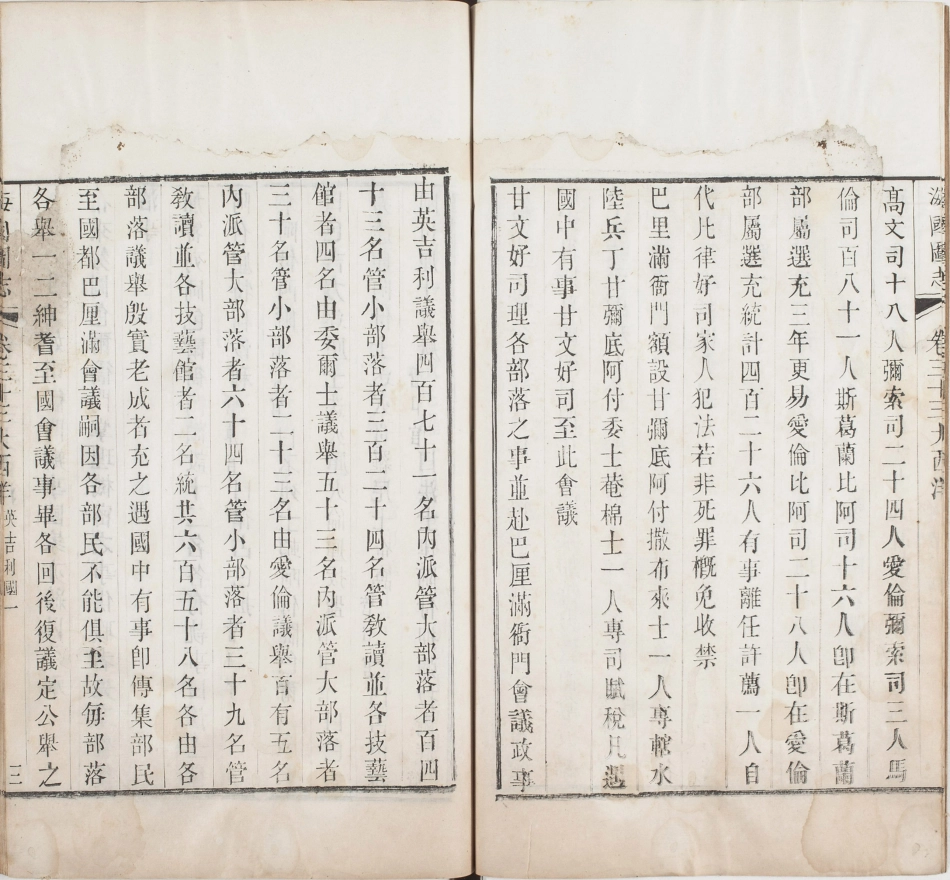 海國圖志 卷三十三 大西洋
高文司十八人彌索司二十四人愛倫彌索司三人馬
倫司百八十一人斯葛蘭比阿司十六人卽在斯葛蘭
部屬選充三年更易愛倫比阿司二十八人卽在愛倫
部屬選充統計四百二十六人有事離任許薦一人自
代比律好司家人犯法若非死罪概免收禁
巴里滿衙門額設甘彌底阿付撒布來士一人專轄水
陸兵丁甘彌底阿付委士菴棉士一人專司賦稅凡遇
國中有事甘文好司至此會議
甘文好司理各部落之事並赴巴厘滿衙門會議政事
由英吉利議舉四百七十一名內派管大部落者百四
十三名管小部落者三百二十四名管敎讀並各技藝
館者四名由委爾士議舉五十三名內派管大部落者
三十名管小部落者二十三名由愛倫議舉百有五名
內派管大部落者六十四名管小部落者三十九名管
敎讀並各技藝館者二名統共六百五十八名各由各
部落議舉殷實老成者充之遇國中有事卽傳集部民
至國都巴厘滿會議嗣因各部民不能俱至故每部落
各舉一二紳耆至國會議事畢各回後復議定公舉之
海國圖志 卷三十三 大西洋 英吉利國一 三